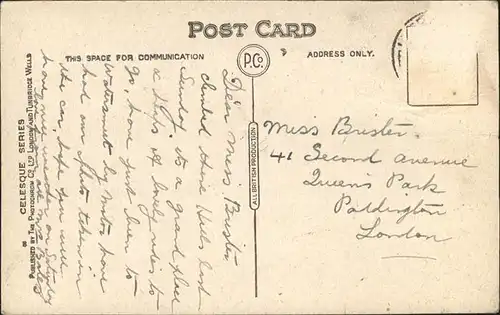 POST CARD
THIS SPACE FOR COMMUNICATION
P.Co.
ADDRESS ONLY.
CELESQUE SERIES
PUBLISHED BY THE PHOTOCHROM CO. LTD. LONDON AND TUNBRIDGE WELLS
ALL BRITISH PRODUCTION
Dear Miss Brister
climbed these Hills last
Sunday its a grand place
& Heaps of lovely rides to
go have just been to
by Motor have
had our taken in
the car hope you will
have on Saturday
Miss Brister.
41 Second Avenue
Queen's Park
Paddington
London